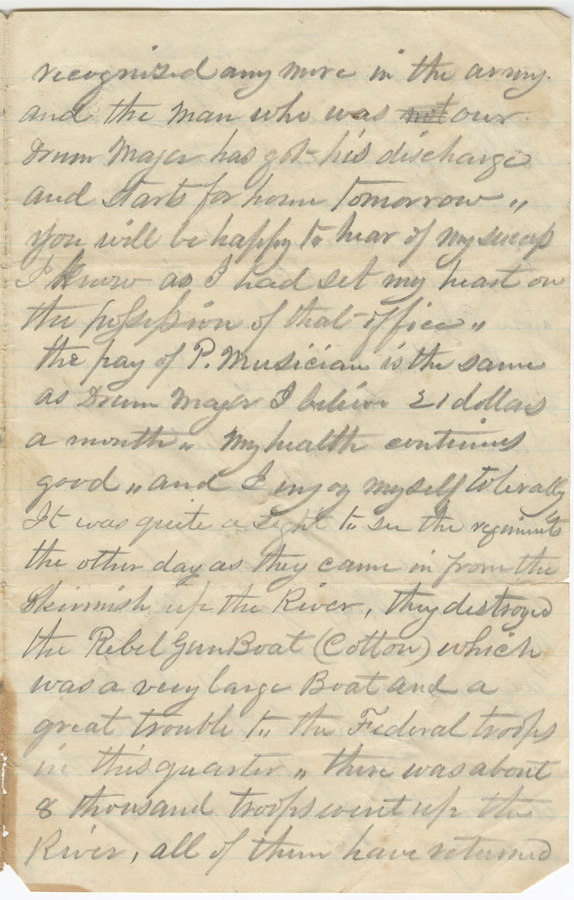 recognised any more in the army.
and the man who was not our
Drum Majer has got his discharge
and starts for home tomorrow „
you will be happy to hear of my sucess
I know as I had set my heart on
the possession of that office „
the pay of P. Musician is the same
as Drum Majer I believe 21 dollars
a month „ My health continues
good „ and I injoy myself tolerally
It was quite a Sight to see the regiments
the other day as they came in from the
Skirmish up the River, they destroyed
the Rebel Gun Boat (Cotton) which
was a very large Boat and a
great trouble to the Federal troops
in this quarter „ there was about
8 thousand troops went up the
River, all of them have returned